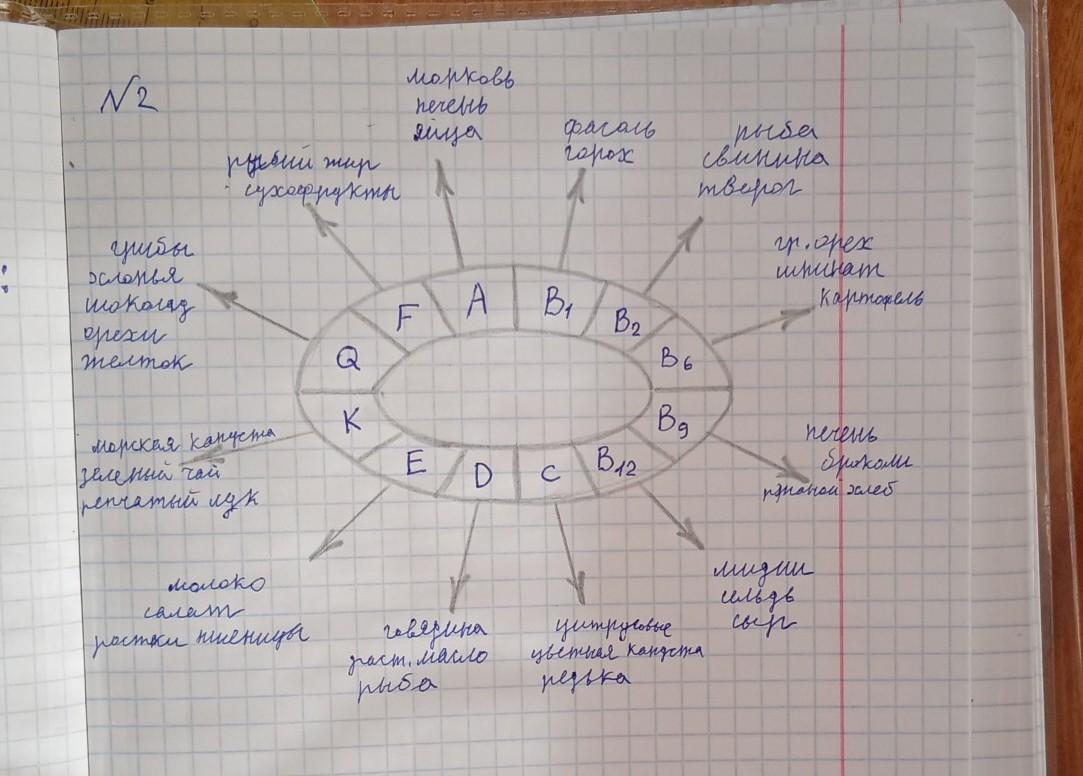 №2
морковь
печень
яйца
фасоль
горох
рыба
свинина
творог
рыбий жир
сухофрукты
гр. орех
шпинат
картофель
грибы
хлопья
шоколад
орехи
желток
F
A
B1
B2
Q
B6
K
B9
E
D
C
B12
морская капуста
зеленый чай
репчатый лук
печень
броколи
ржаной хлеб
молоко
салат
ростки пшеницы
говядина
раст. масло
рыба
цитрусовые
цветная капуста
редька
мидии
сельдь
сыр